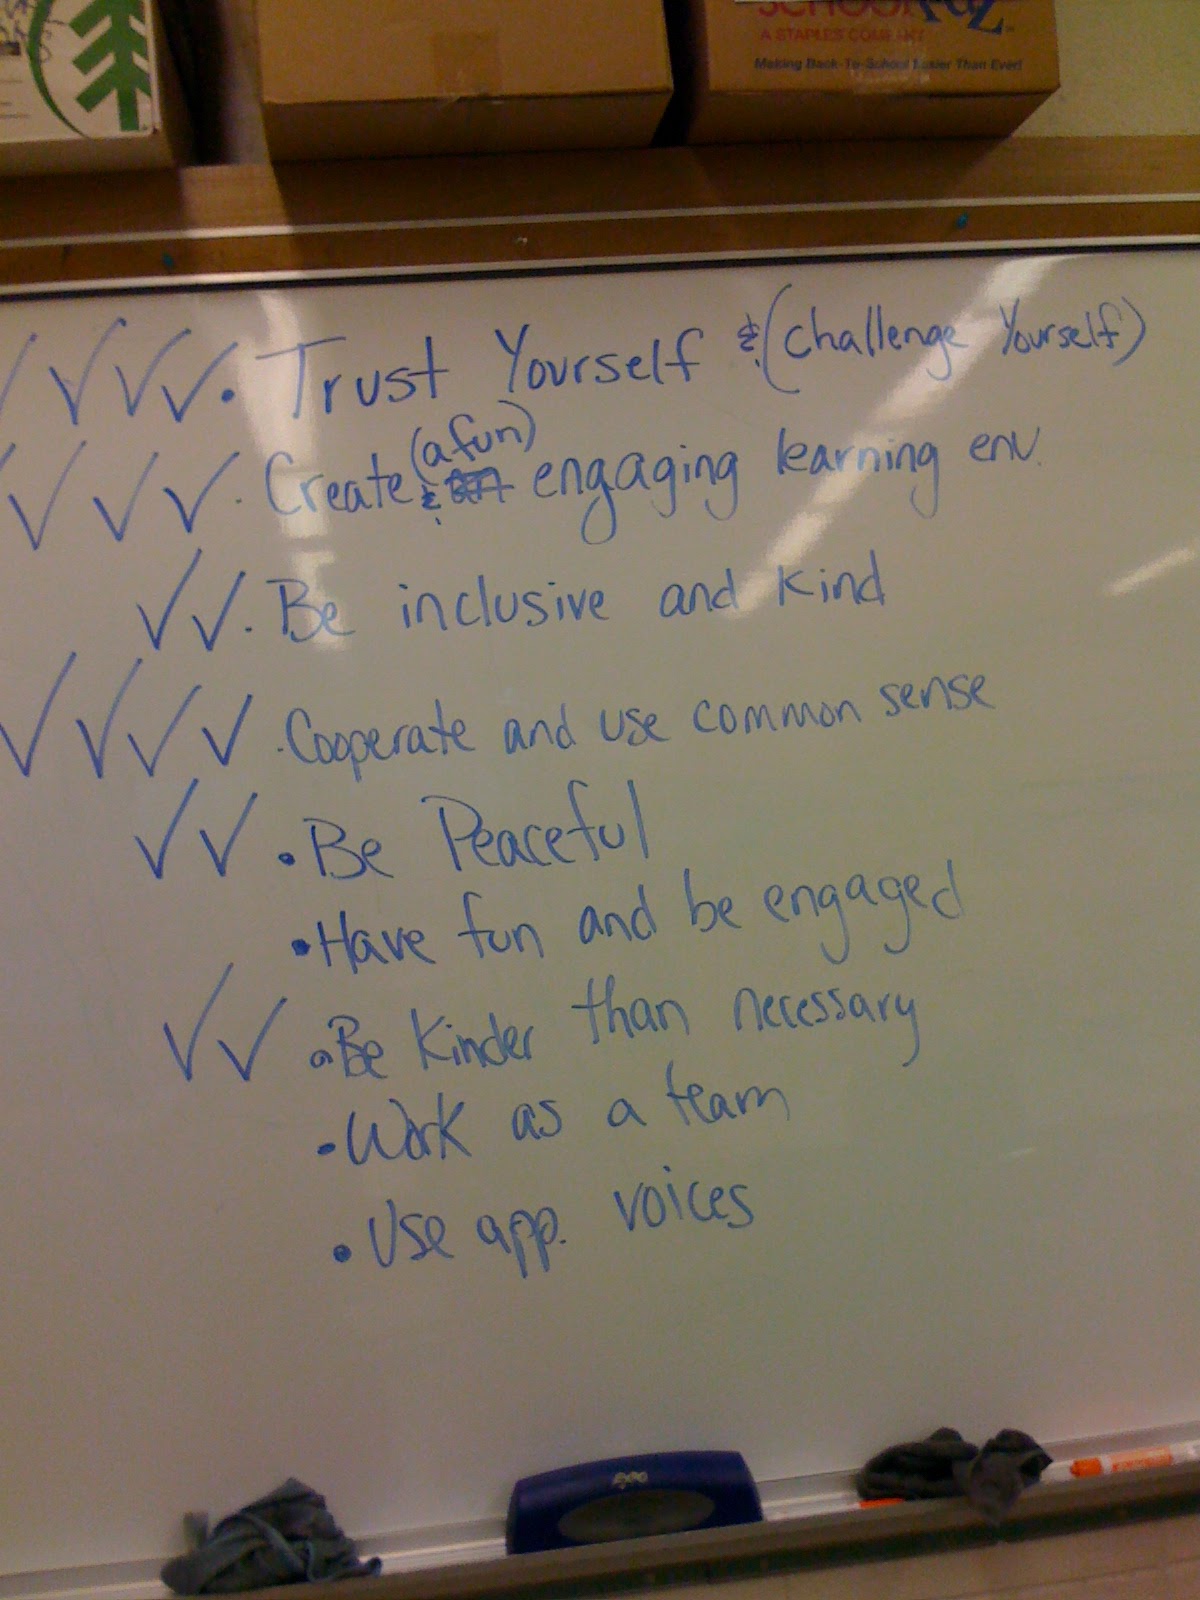 SCHOOL
A STAPLES COMPANY
Making Back-To-School Easier Than Ever!
✓ ✓ ✓ ✓ • Trust Yourself & (Challenge Yourself)
✓ ✓ ✓ • Create (a fun) & engaging learning env.
✓ ✓ • Be inclusive and kind
✓ ✓ ✓ ✓ • Cooperate and use common sense
✓ ✓ • Be Peaceful
• Have fun and be engaged
✓ ✓ • Be Kinder than necessary
• Work as a team
• Use app. voices